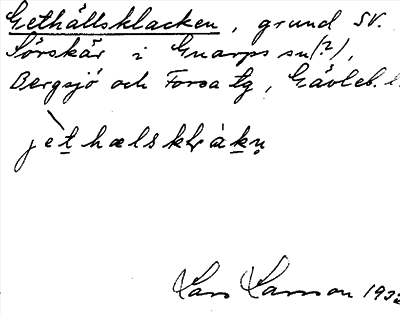 Gethällsklacken, grund SV.
Sörskär i Gnarps sn(?),
Bergsjö och Forsa tg, Gävleb. l.
jethælsklàkn̥
Lars Larsson 1932